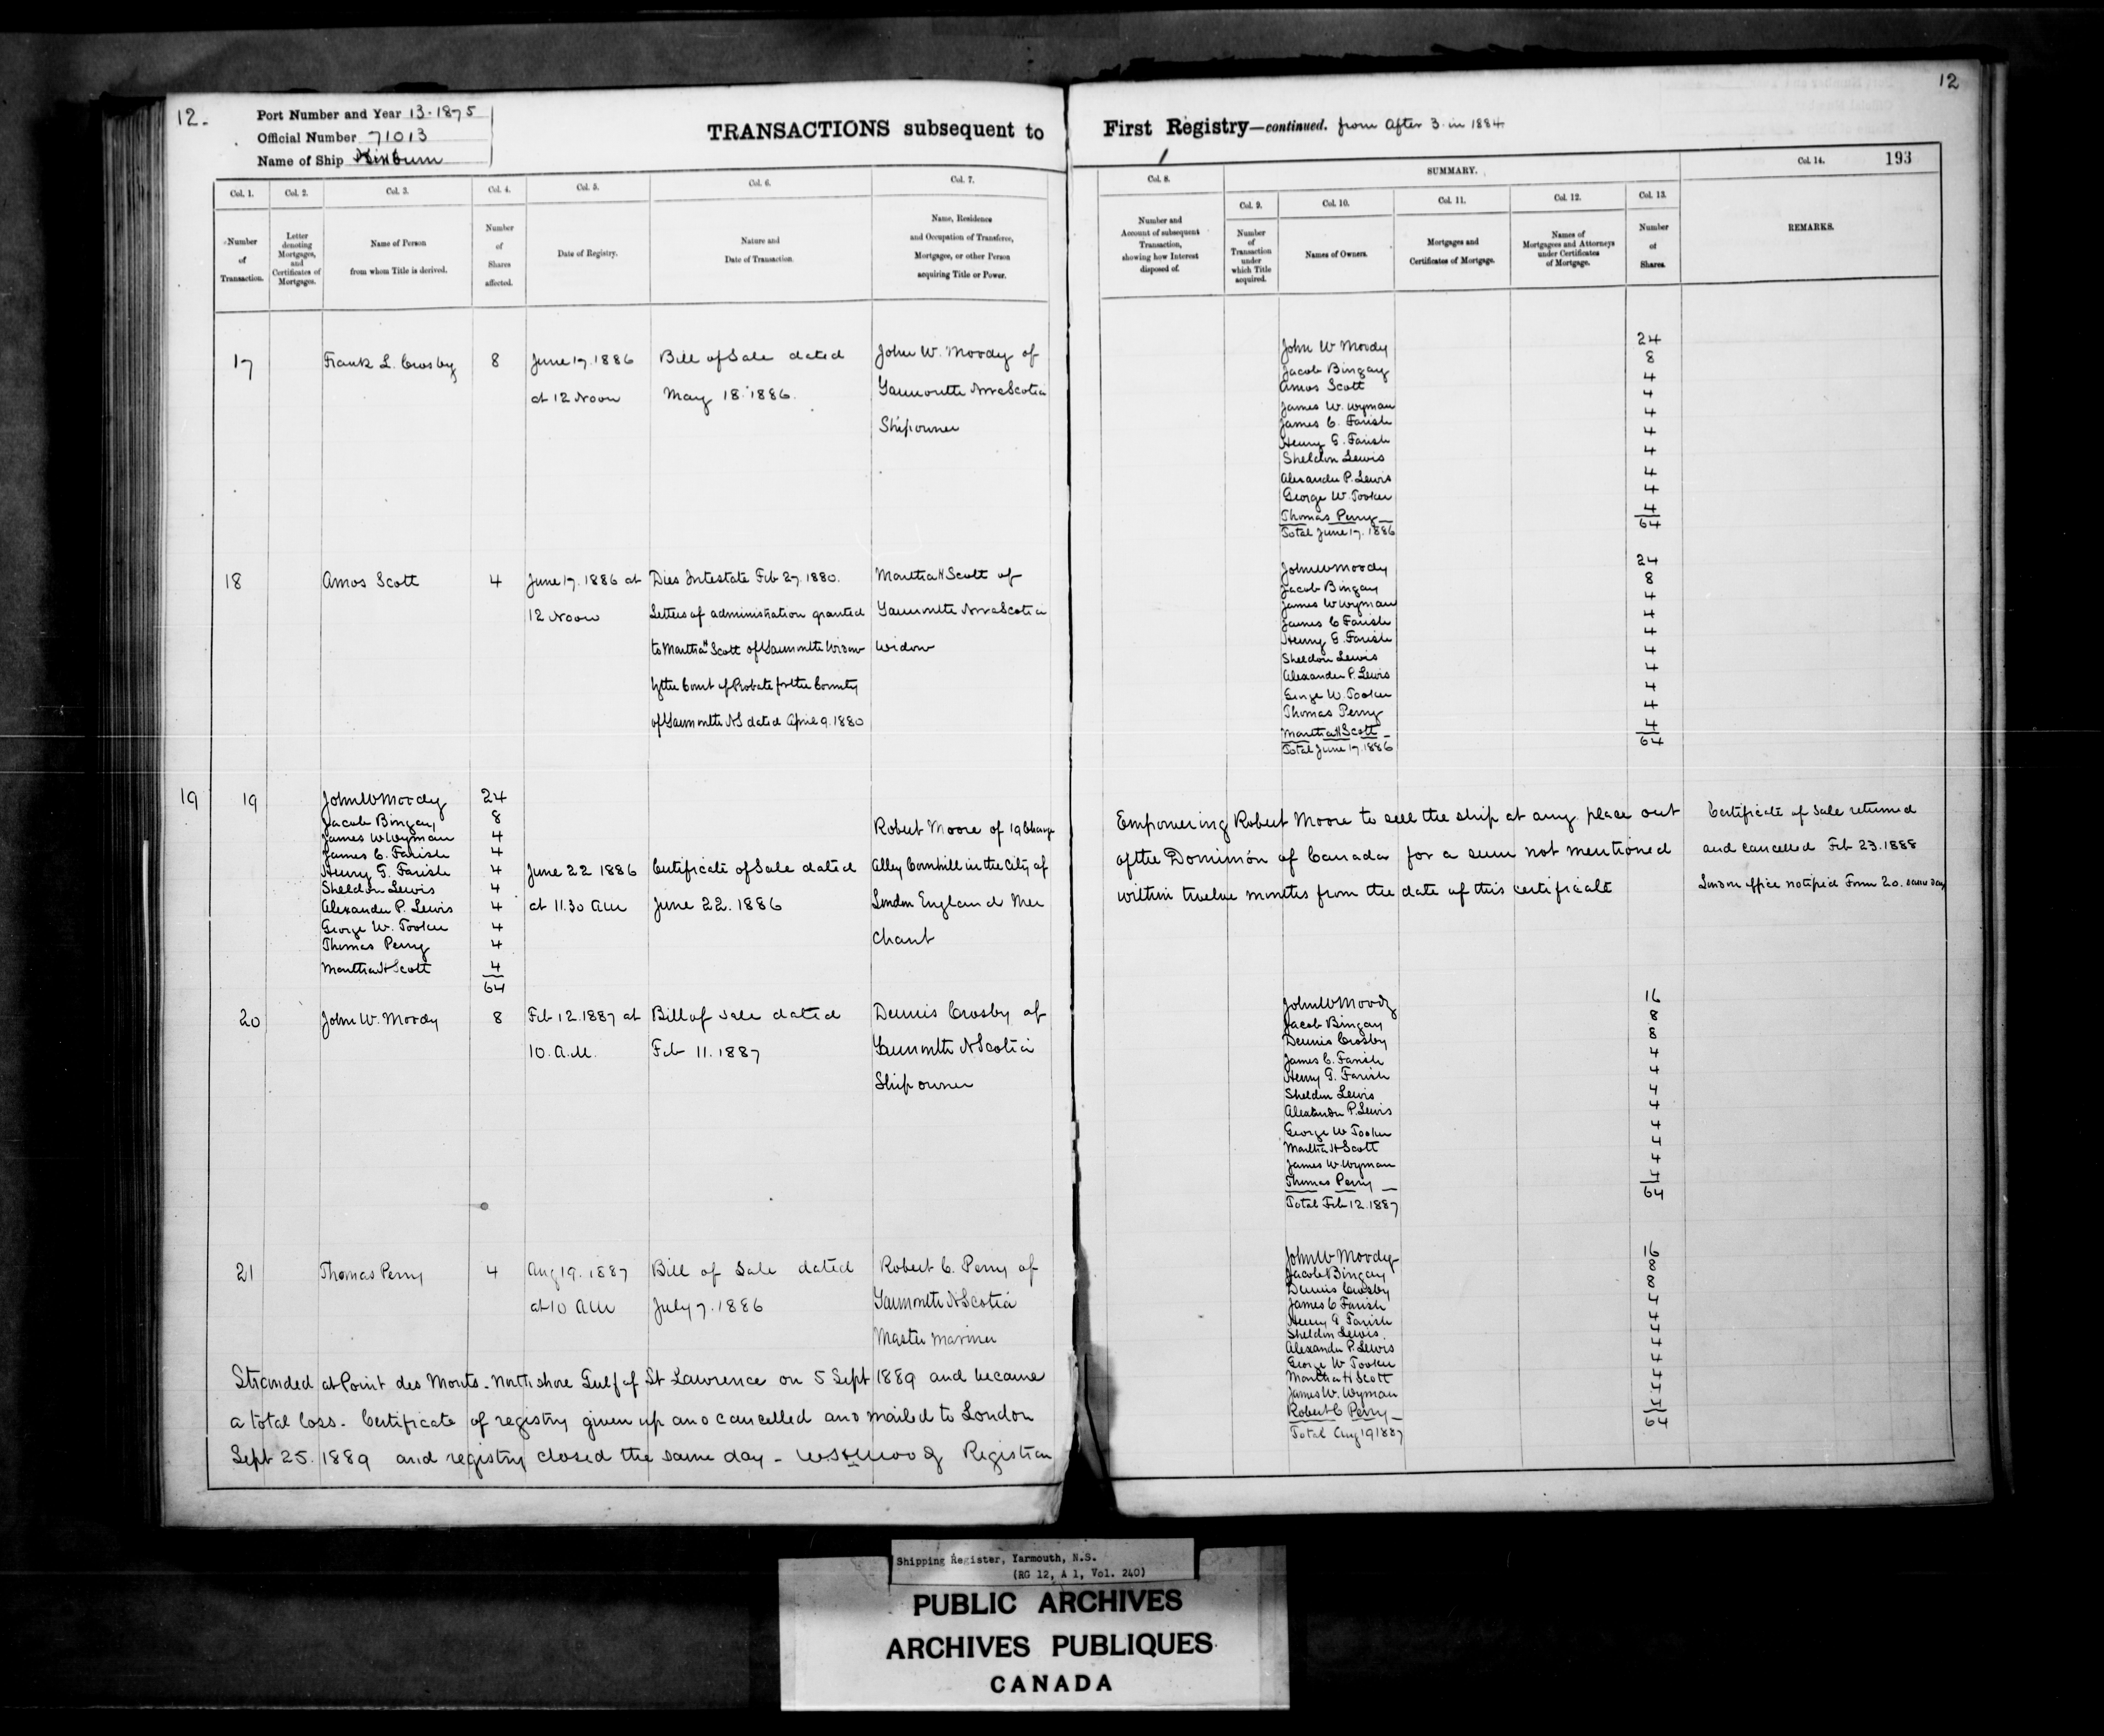 12.
Port Number and Year 13-1875
Official Number 71013
Name of Ship Kinburn
TRANSACTIONS subsequent to
Col. 1.
Col. 2.
Col. 3.
Col. 4.
Col. 5.
Col. 6.
Col. 7.
Number
of
Transaction.
Letter
denoting
Mortgages,
and
Certificates of
Mortgages.
Name of Person
from whom Title is derived.
Number
of
Shares
affected.
Date of Registry.
Nature and
Date of Transaction.
Name, Residence
and Occupation of Transferee,
Mortgagee, or other Person
acquiring Title or Power.
17
Frank L. Crosby
8
June 17. 1886
at 12 Noon
Bill of Sale dated
May 18. 1886.
John W. Moody of
Yarmouth Nova Scotia
Shipowner
18
Amos Scott
4
June 17. 1886 at
12 Noon
Dies Intestate Feb 27. 1880.
Letters of administration granted
to Martha H Scott of Yarmouth Widow
by the Court of Probate for the County
of Yarmouth NS dated April 9. 1880
Martha H Scott of
Yarmouth Nova Scotia
Widow
19
19
John W Moody 24
Jacob Bingay 8
James W Wyman 4
James C. Farish 4
Henry G. Farish 4
Sheldon Lewis 4
Alexander P. Lewis 4
George W. Tooker 4
Thomas Perry 4
Martha H Scott 4
64
June 22 1886
at 11.30 AM
Certificate of Sale dated
June 22. 1886
Robert Moore of 19 Change
Alley Cornhill in the City of
London England Mer
chant
20
John W. Moody
8
Feb 12. 1887 at
10. A.M.
Bill of Sale dated
Feb 11. 1887
Dennis Crosby of
Yarmouth N Scotia
Ship owner
21
Thomas Perry
4
Aug 19. 1887
at 10 AM
Bill of Sale dated
July 7. 1886
Robert C. Perry of
Yarmouth N Scotia
Master Mariner
Stranded at Point des Monts - North shore Gulf of St Lawrence on 5 Sept 1889 and became
a total loss - Certificate of registry given up and cancelled and mailed to London
Sept 25. 1889 and registry closed the same day - Registrar
12
First Registry—continued. from After 3 in 1884
193
Col. 8.
SUMMARY.
Col. 9.
Col. 10.
Col. 11.
Col. 12.
Col. 13.
Col. 14.
Number and
Account of subsequent
Transaction,
showing how Interest
disposed of.
Number
of
Transaction
under
which Title
acquired.
Names of Owners.
Mortgages and
Certificates of Mortgage.
Names of
Mortgagees and Attorneys
under Certificates
of Mortgage.
Number
of
Shares.
REMARKS.
John W Moody 24
Jacob Bingay 8
Amos Scott 4
James W. Wyman 4
James C. Farish 4
Henry G. Farish 4
Sheldon Lewis 4
Alexander P. Lewis 4
George W. Tooker 4
Thomas Perry 4
Total June 17. 1886 64
John W Moody 24
Jacob Bingay 8
James W Wyman 4
James C Farish 4
Henry G. Farish 4
Sheldon Lewis 4
Alexander P. Lewis 4
George W. Tooker 4
Thomas Perry 4
Martha H Scott 4
Total June 17. 1886 64
Empowering Robert Moore to sell the ship at any place out
of the Dominion of Canada for a sum not mentioned
within twelve months from the date of this certificate
Certificate of Sale returned
and cancelled Feb 23. 1888
London office notified Form 20. same day
John W Moody 16
Jacob Bingay 8
Dennis Crosby 8
James C. Farish 4
Henry G. Farish 4
Sheldon Lewis 4
Alexander P. Lewis 4
George W Tooker 4
Martha H Scott 4
James W Wyman 4
Thomas Perry 4
Total Feb 12. 1887 64
John W Moody 16
Jacob Bingay 8
Dennis Crosby 8
James C Farish 4
Henry G Farish 4
Sheldon Lewis. 4
Alexander P. Lewis 4
George W Tooker 4
Martha H Scott 4
James W. Wyman 4
Robert C Perry 4
Total Aug 19 1887 64
Shipping Register, Yarmouth, N.S.
(RG 12, A 1, Vol. 240)
PUBLIC ARCHIVES
ARCHIVES PUBLIQUES
CANADA